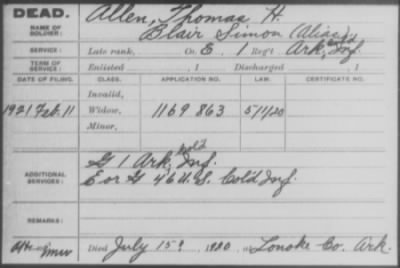 DEAD. Allen, Thomas H.
NAME OF SOLDIER: Blair Simon (Alias)
SERVICE: Late rank, Co. E, 1 Reg't Ark. Cold Inf.
TERM OF SERVICE: Enlisted , 1 Discharged , 1
DATE OF FILING. CLASS. APPLICATION NO. LAW. CERTIFICATE NO.
Invalid,
1921 Feb. 11 Widow, 1169 863 5/1/20
Minor,
G 1 Ark. Cold Inf.
ADDITIONAL SERVICES: E or G 46 U.S. Cold Inf.
REMARKS:
Died July 15, 1880, at Lonoke Co. Ark.